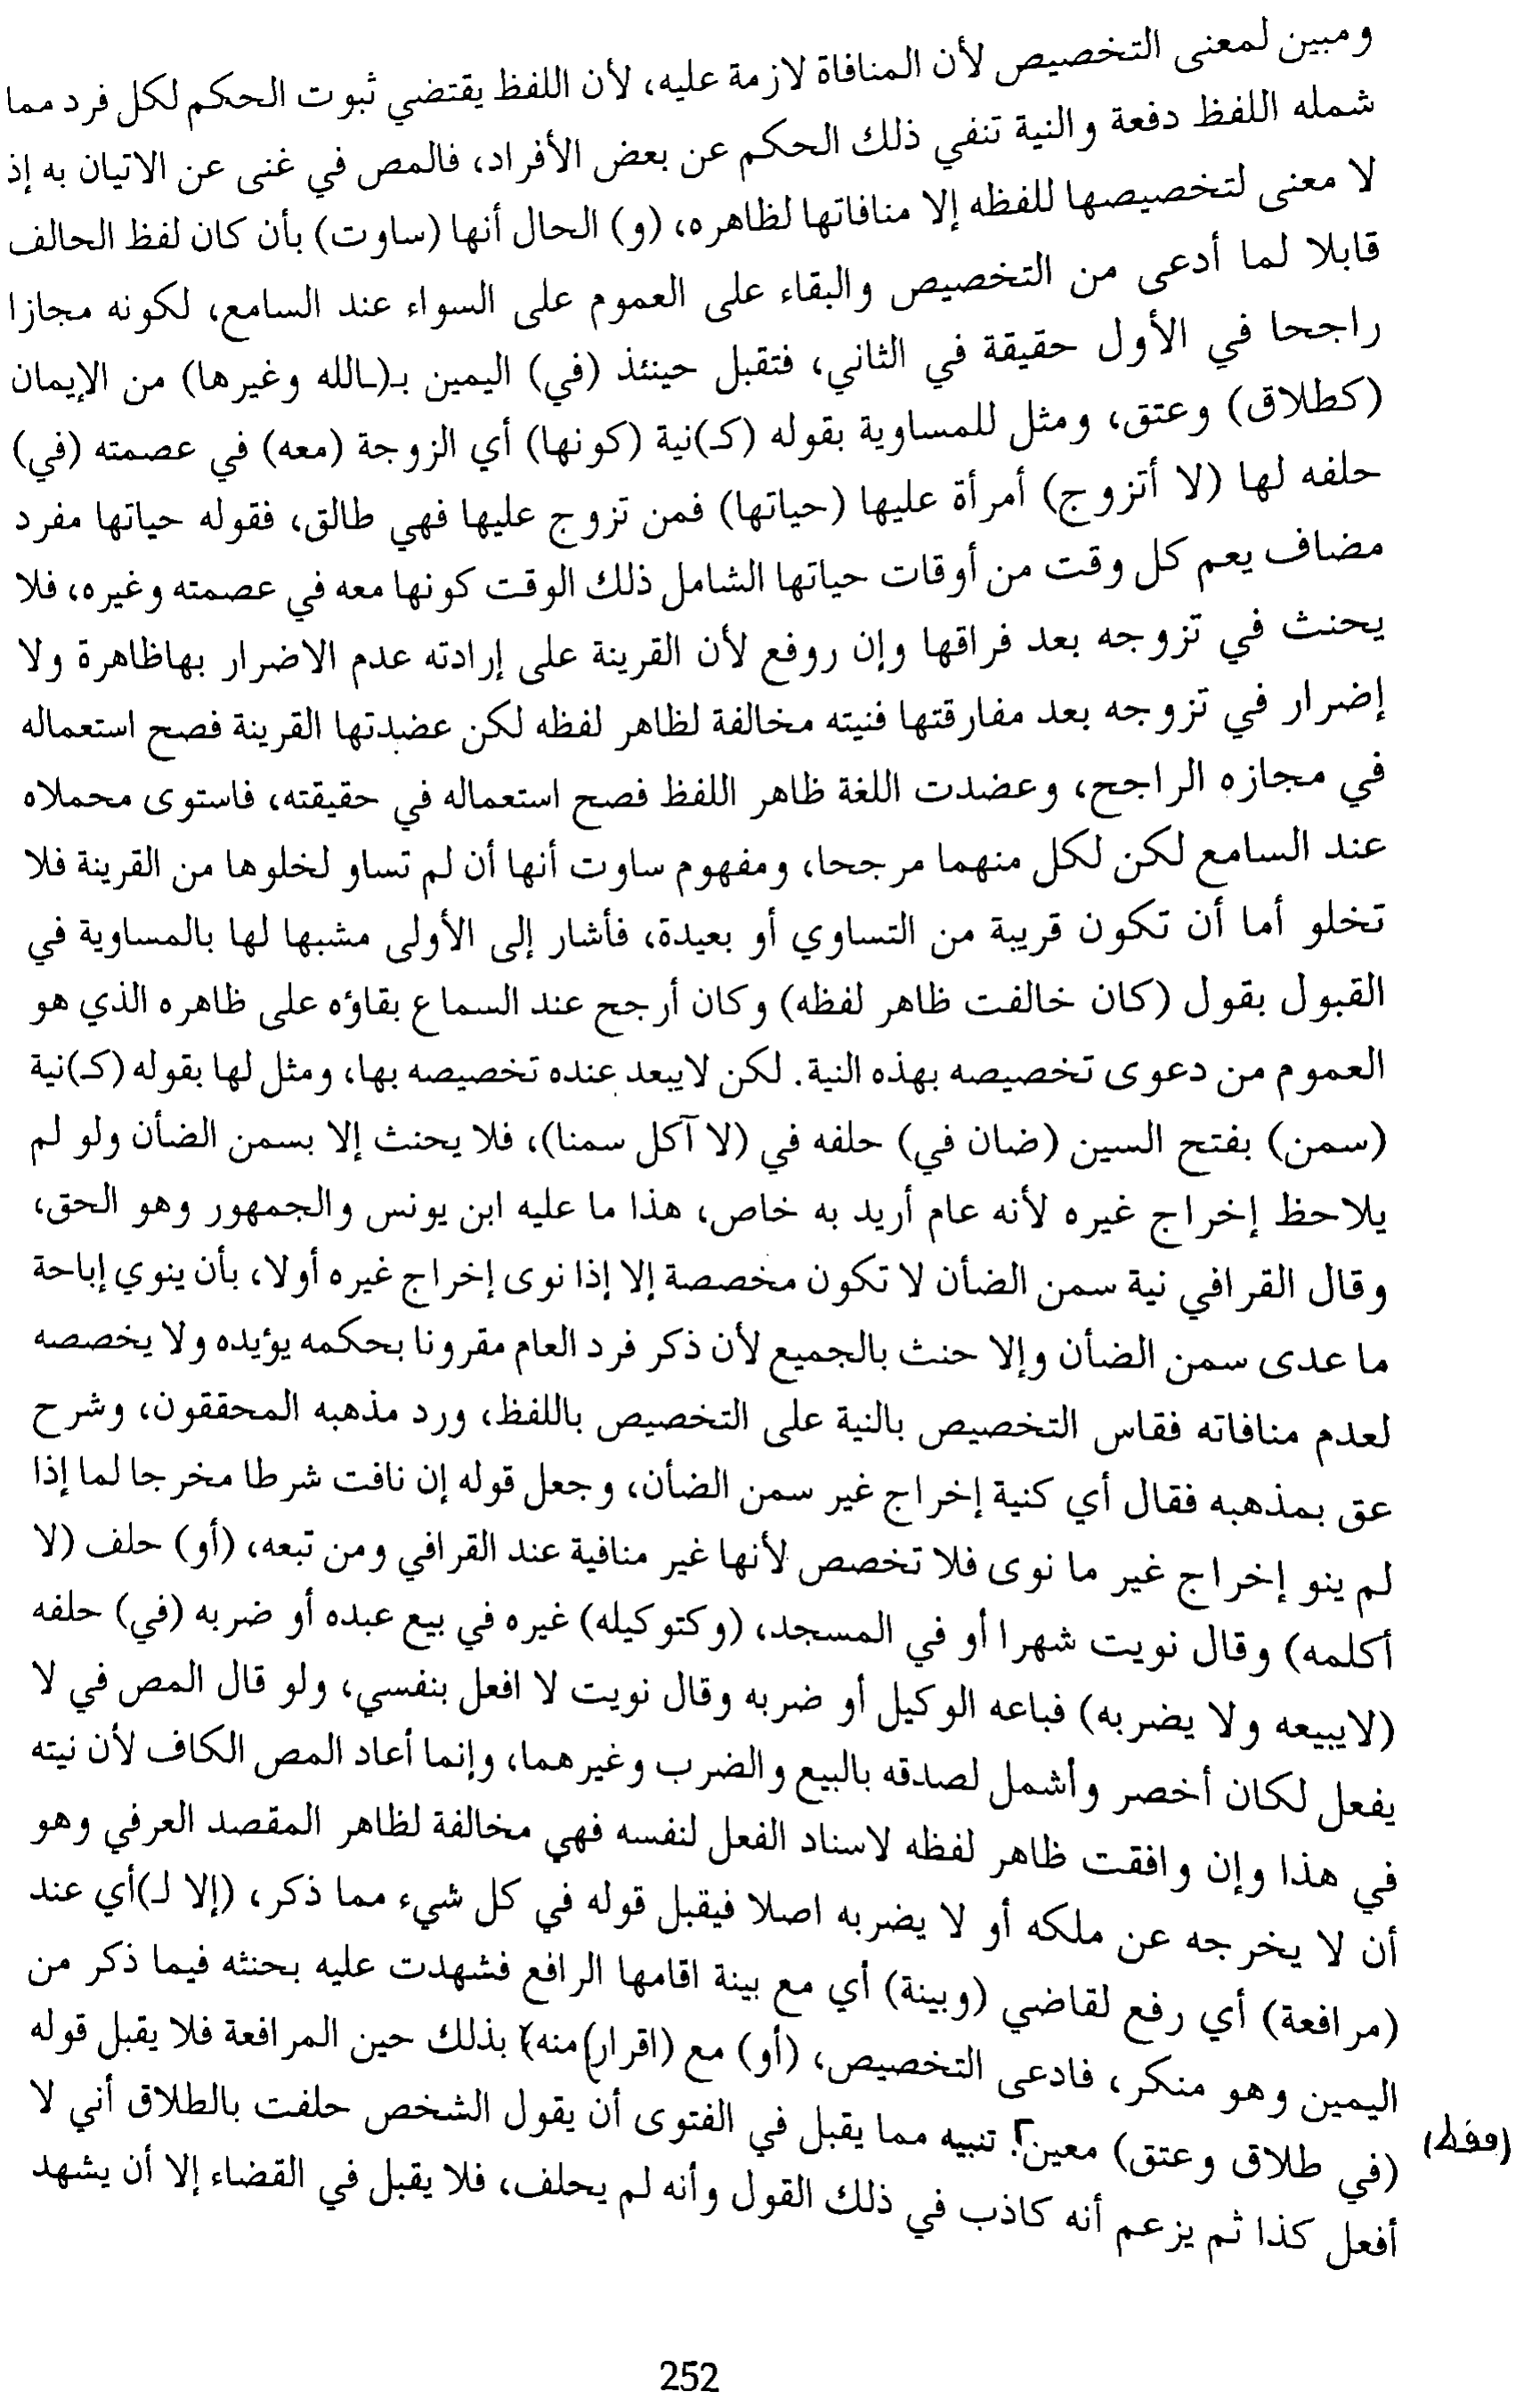 ومبين لمعنى التخصيص لأن المنافاة لازمة عليه، لأن اللفظ يقتضي ثبوت الحكم لكل فرد مما
شمله اللفظ دفعة والنية تنفي ذلك الحكم عن بعض الأفراد، فالمص في غنى عن الاتيان به إذ
لا معنى لتخصيصها للفظه إلا منافاتها لظاهره، (و) الحال أنها (ساوت) بأن كان لفظ الحالف
قابلا لما أدعى من التخصيص والبقاء على العموم على السواء عند السامع، لكونه مجازا
راجحا في الأول حقيقة في الثاني، فتقبل حينئذ (في) اليمين بـ(ـالله وغيرها) من الإيمان
(كطلاق) وعتق، ومثل للمساوية بقوله (كـ)نية (كونها) أي الزوجة (معه) في عصمته (في)
حلفه لها (لا أتزوج) أمرأة عليها (حياتها) فمن تزوج عليها فهي طالق، فقوله حياتها مفرد
مضاف يعم كل وقت من أوقات حياتها الشامل ذلك الوقت كونها معه في عصمته وغيره، فلا
يحنث في تزوجه بعد فراقها وإن روفع لأن القرينة على إرادته عدم الاضرار بهاظاهرة ولا
إضرار في تزوجه بعد مفارقتها فنيته مخالفة لظاهر لفظه لكن عضدتها القرينة فصح استعماله
في مجازه الراجح، وعضدت اللغة ظاهر اللفظ فصح استعماله في حقيقته، فاستوى محملاه
عند السامع لكن لكل منهما مرجحا، ومفهوم ساوت أنها أن لم تساو لخلوها من القرينة فلا
تخلو أما أن تكون قريبة من التساوي أو بعيدة، فأشار إلى الأولى مشبها لها بالمساوية في
القبول بقول (كان خالفت ظاهر لفظه) وكان أرجح عند السماع بقاؤه على ظاهره الذي هو
العموم من دعوى تخصيصه بهذه النية. لكن لايبعد عنده تخصيصه بها، ومثل لها بقوله (كـ)نية
(سمن) بفتح السين (ضان في) حلفه في (لا آكل سمنا)، فلا يحنث إلا بسمن الضأن ولو لم
يلاحظ إخراج غيره لأنه عام أريد به خاص، هذا ما عليه ابن يونس والجمهور وهو الحق،
وقال القرافي نية سمن الضأن لا تكون مخصصة إلا إذا نوى إخراج غيره أولا، بأن ينوي إباحة
ما عدى سمن الضأن وإلا حنث بالجميع لأن ذكر فرد العام مقرونا بحكمه يؤيده ولا يخصصه
لعدم منافاته فقاس التخصيص بالنية على التخصيص باللفظ، ورد مذهبه المحققون، وشرح
عق بمذهبه فقال أي كنية إخراج غير سمن الضأن، وجعل قوله إن نافت شرطا مخرجا لما إذا
لم ينو إخراج غير ما نوى فلا تخصص لأنها غير منافية عند القرافي ومن تبعه، (أو) حلف (لا
أكلمه) وقال نويت شهرا أو في المسجد، (وكتوكيله) غيره في بيع عبده أو ضربه (في) حلفه
(لايبيعه ولا يضربه) فباعه الوكيل أو ضربه وقال نويت لا افعل بنفسي، ولو قال المص في لا
يفعل لكان أخصر وأشمل لصدقه بالبيع والضرب وغيرهما، وإنما أعاد المص الكاف لأن نيته
في هذا وإن وافقت ظاهر لفظه لاسناد الفعل لنفسه فهي مخالفة لظاهر المقصد العرفي وهو
أن لا يخرجه عن ملكه أو لا يضربه اصلا فيقبل قوله في كل شيء مما ذكر، (إلا لـ)أي عند
(مرافعة) أي رفع لقاضي (وبينة) أي مع بينة اقامها الرافع فشهدت عليه بحنثه فيما ذكر من
اليمين وهو منكر، فادعى التخصيص، (أو) مع (اقرار)منه) بذلك حين المرافعة فلا يقبل قوله
(في طلاق وعتق) معين. تنبيه مما يقبل في الفتوى أن يقول الشخص حلفت بالطلاق أني لا
(فقط)
أفعل كذا ثم يزعم أنه كاذب في ذلك القول وأنه لم يحلف، فلا يقبل في القضاء إلا أن يشهد
252